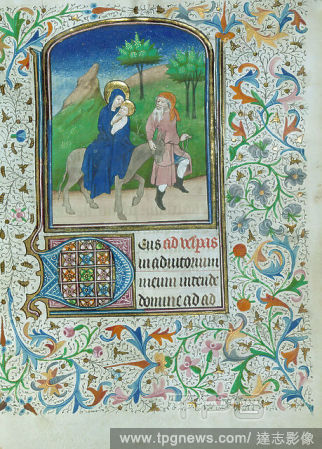 Eus ad vespras
in adiutorium
meum intende
domine ad ad
www.tpgnews.com/ 達志影像